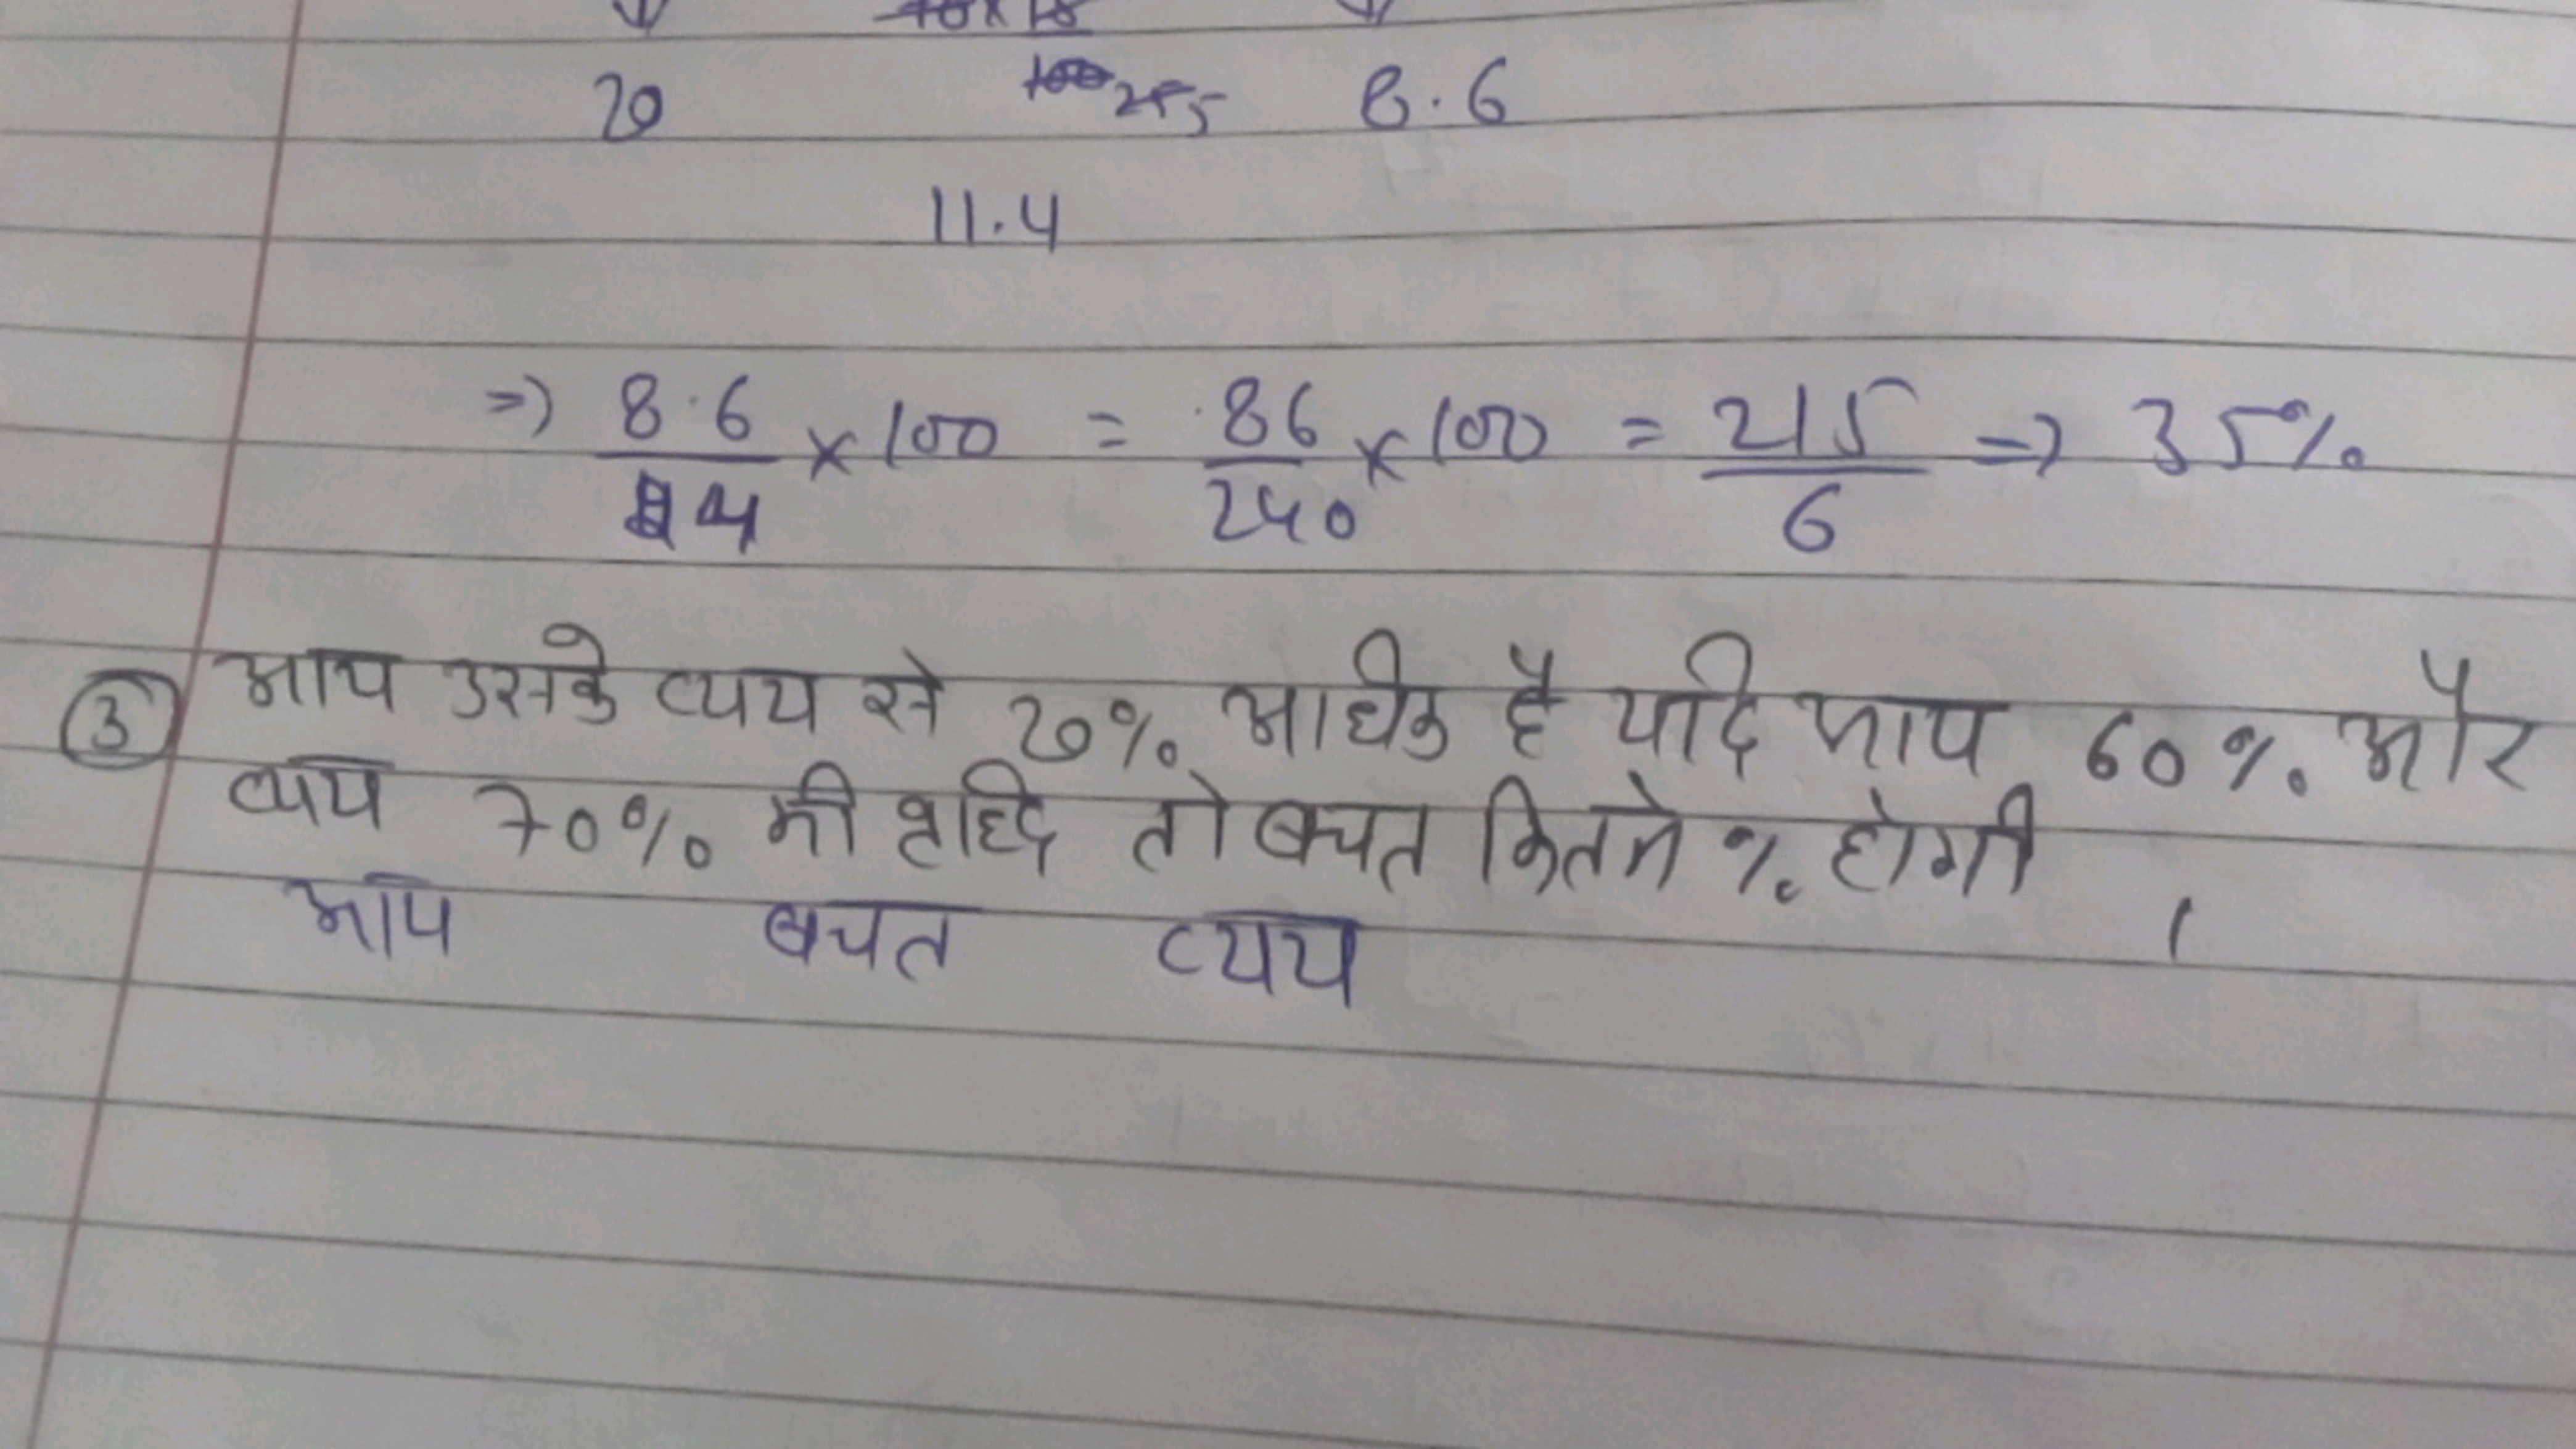 20 8.6
11.4
=> 8.6/24 × 100 = 86/240 × 100 = 215/6 => 35%
③ आय उसके व्यय से 20% अधिक है यदि आय 60% और
व्यय 70% की वृद्धि तो बचत कितने % होगी
आय बचत व्यय